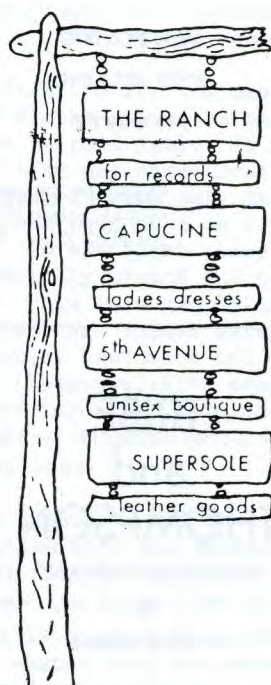 THE RANCH
for records
CAPUCINE
ladies dresses
5th AVENUE
unisex boutique
SUPERSOLE
leather goods